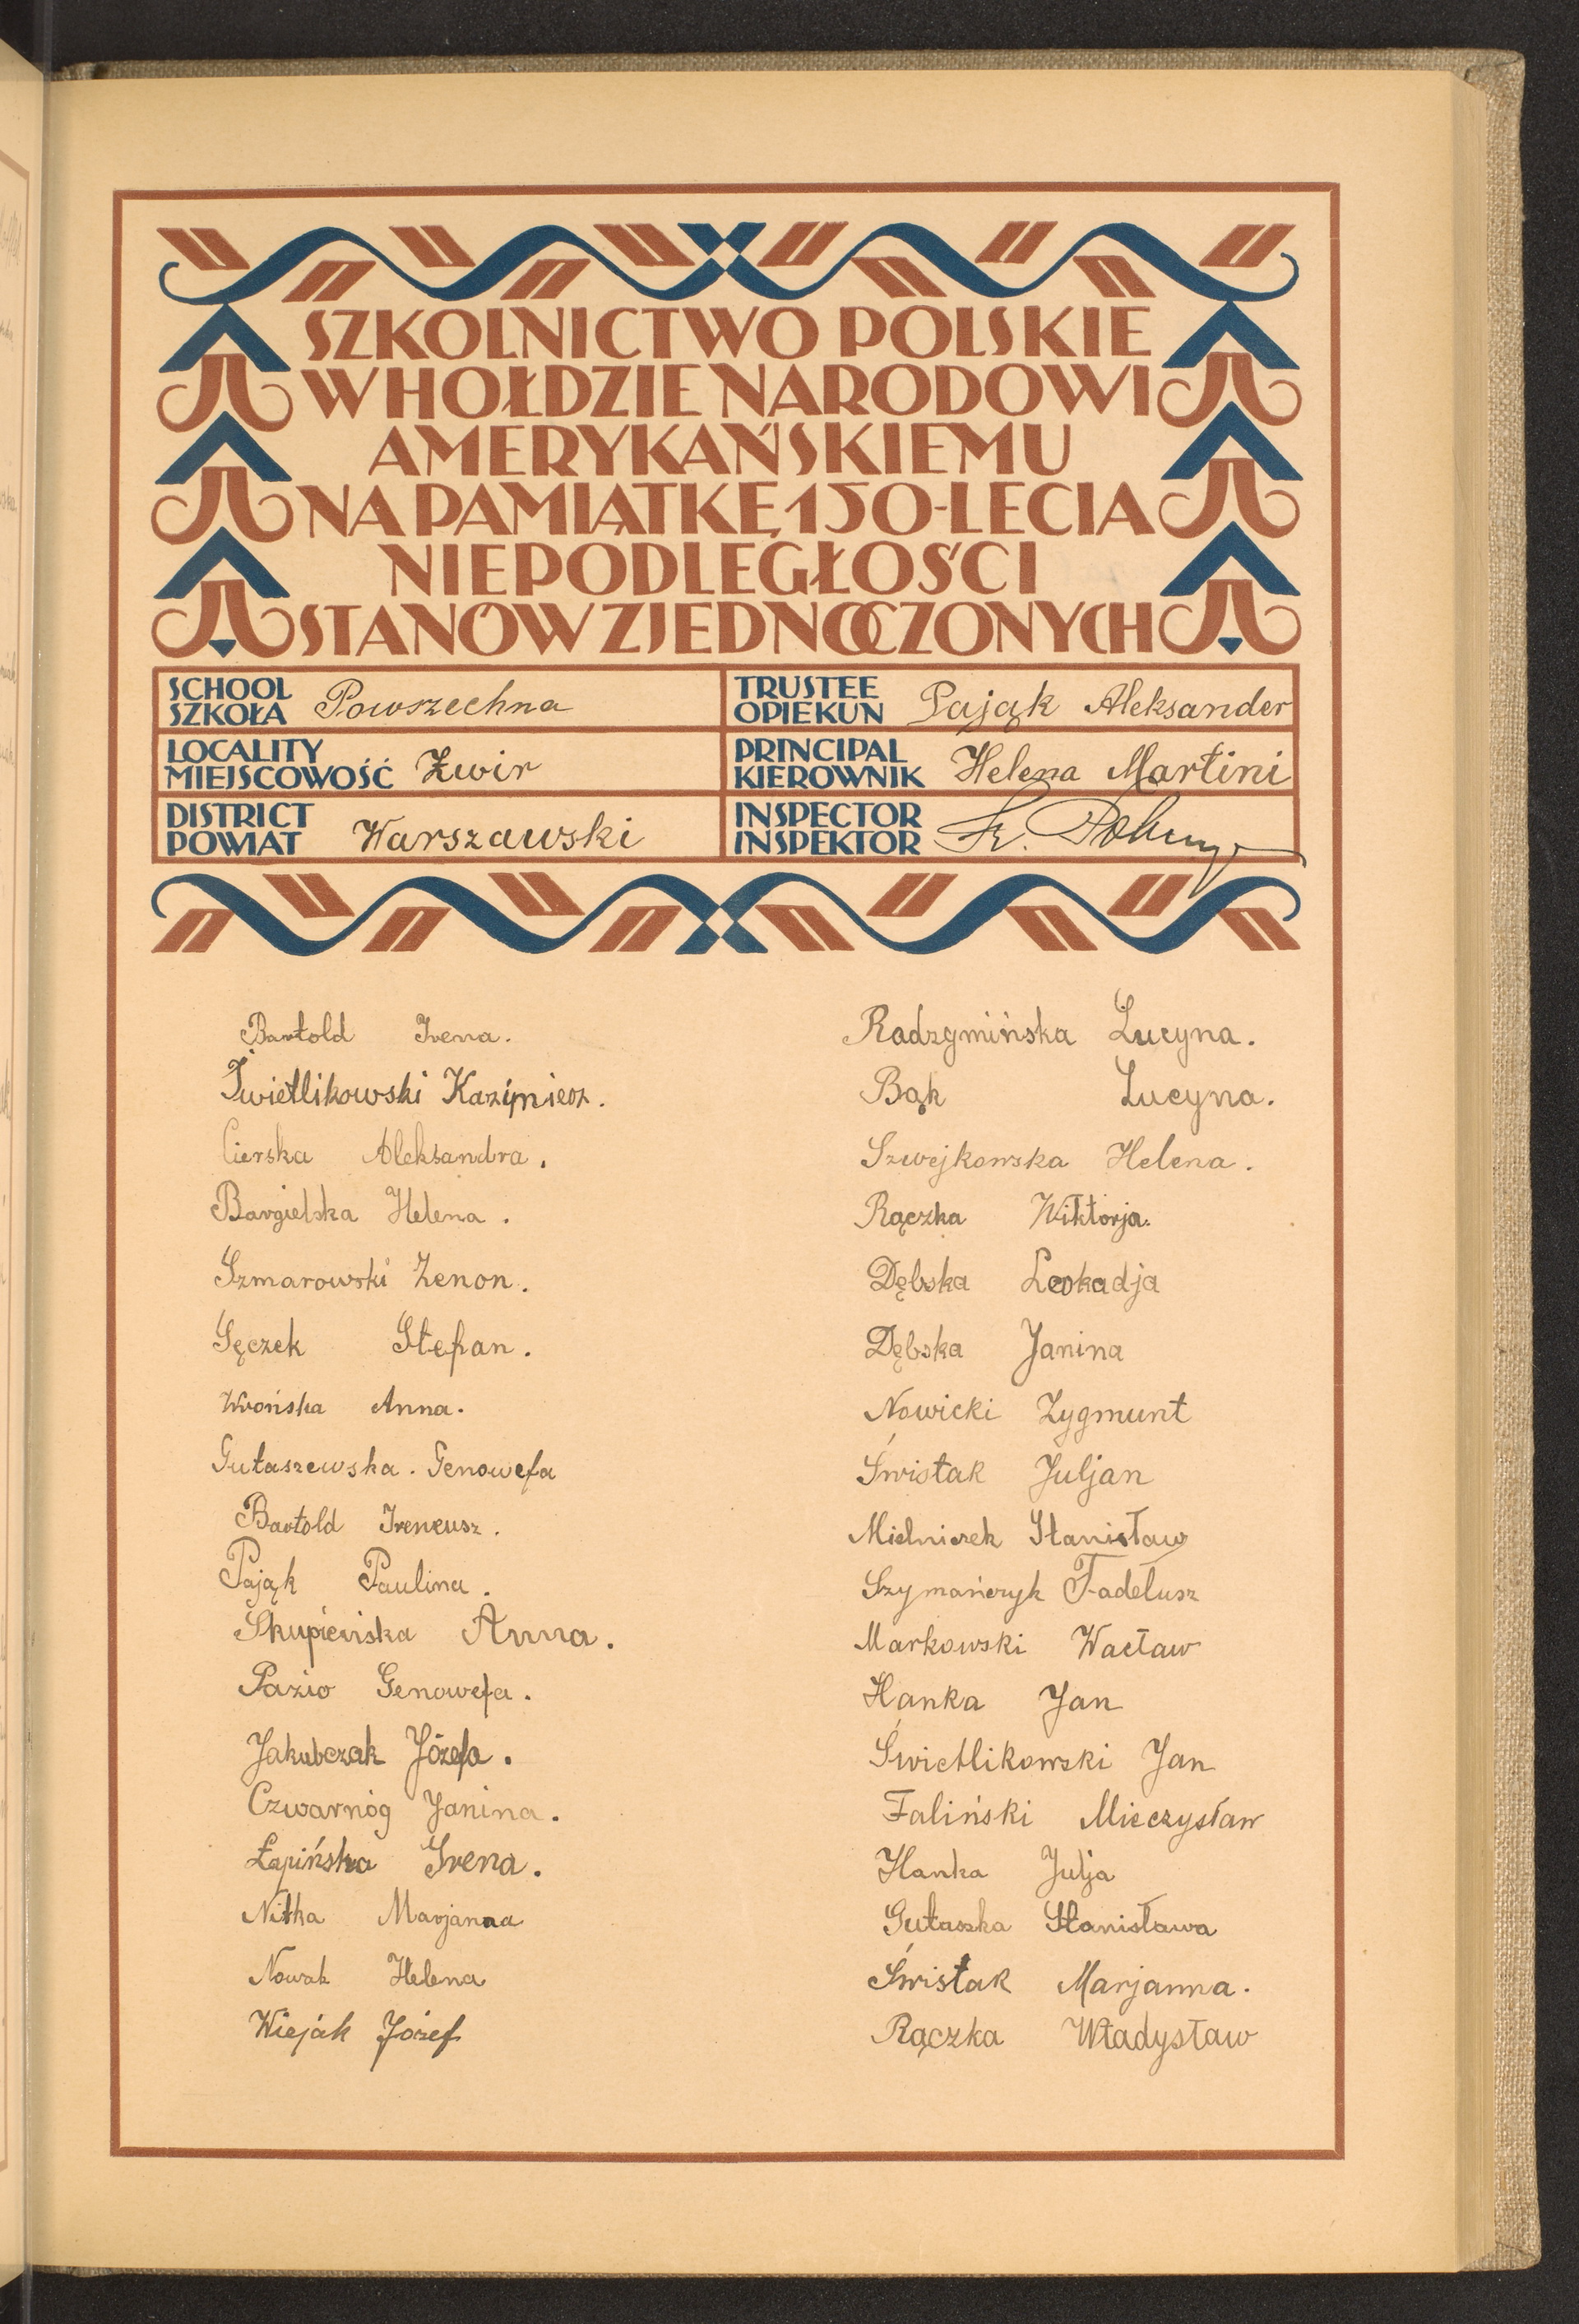 SZKOLNICTWO POLSKIE
W HOŁDZIE NARODOWI
AMERYKAŃSKIEMU
NA PAMIĄTKĘ 150-LECIA
NIEPODLEGŁOŚCI
STANÓW ZJEDNOCZONYCH
SCHOOL
SZKOŁA Powszechna
TRUSTEE
OPIEKUN Pająk Aleksander
LOCALITY
MIEJSCOWOŚĆ Żwir
PRINCIPAL
KIEROWNIK Helena Martini
DISTRICT
POWIAT Warszawski
INSPECTOR
INSPEKTOR
Bartold Irena.
Świetlikowski Kazimierz.
Cierska Aleksandra.
Bargielska Helena.
Szmarowski Zenon.
Sęczek Stefan.
Wrońska Anna.
Gutaszewska. Genowefa
Bartold Ireneusz.
Pająk Paulina.
Skupieńska Anna.
Pazio Genowefa.
Jakubczak Józefa.
Czwarnóg Janina.
Łapińska Irena.
Nitka Marjanna
Nowak Helena
Wiejak Józef
Radzymińska Lucyna.
Bąk Lucyna.
Szwejkowska Helena.
Rączka Wiktorja.
Dębska Leokadja
Dębska Janina
Nowicki Zygmunt
Świstak Juljan
Mielniczek Stanisław
Szymańczyk Tadeusz
Markowski Wacław
Hanka Jan
Świetlikowski Jan
Faliński Mieczysław
Hanka Julja
Gutaszka Stanisława
Świstak Marjanna.
Rączka Władysław